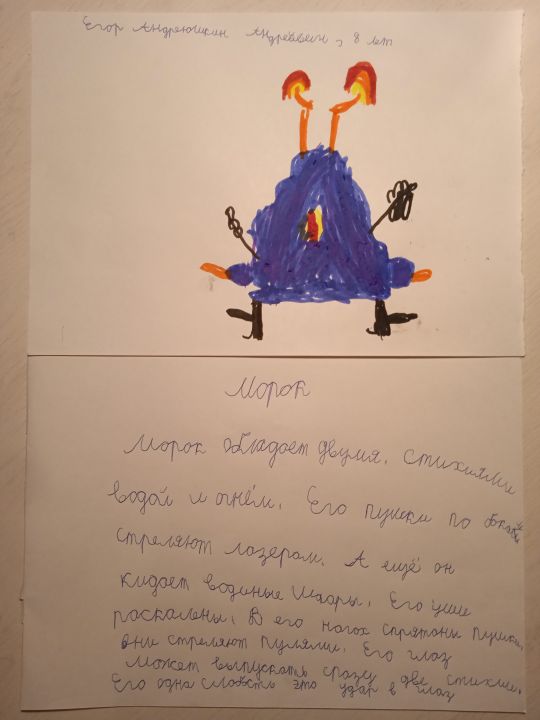 Егор Андреюшкин Андреевич, 8 лет
Морок
Морок обладает двумя, стихиями
водой и огнём. Его пушки по бокам
стреляют лазером. А ещё он
кидает водиные шары. Его уши
раскалены. В его ногах спрятаны пушки,
они стреляют пулями. Его глаз
может выпускать сразу две стихии.
Его одна слабость это удар в глаз